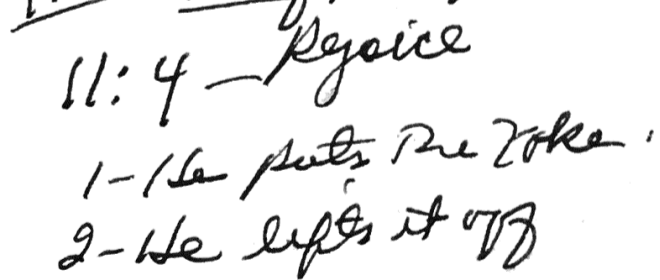 11:4 - Rejoice
1 - He puts The Yoke.
2 - He lifts it off